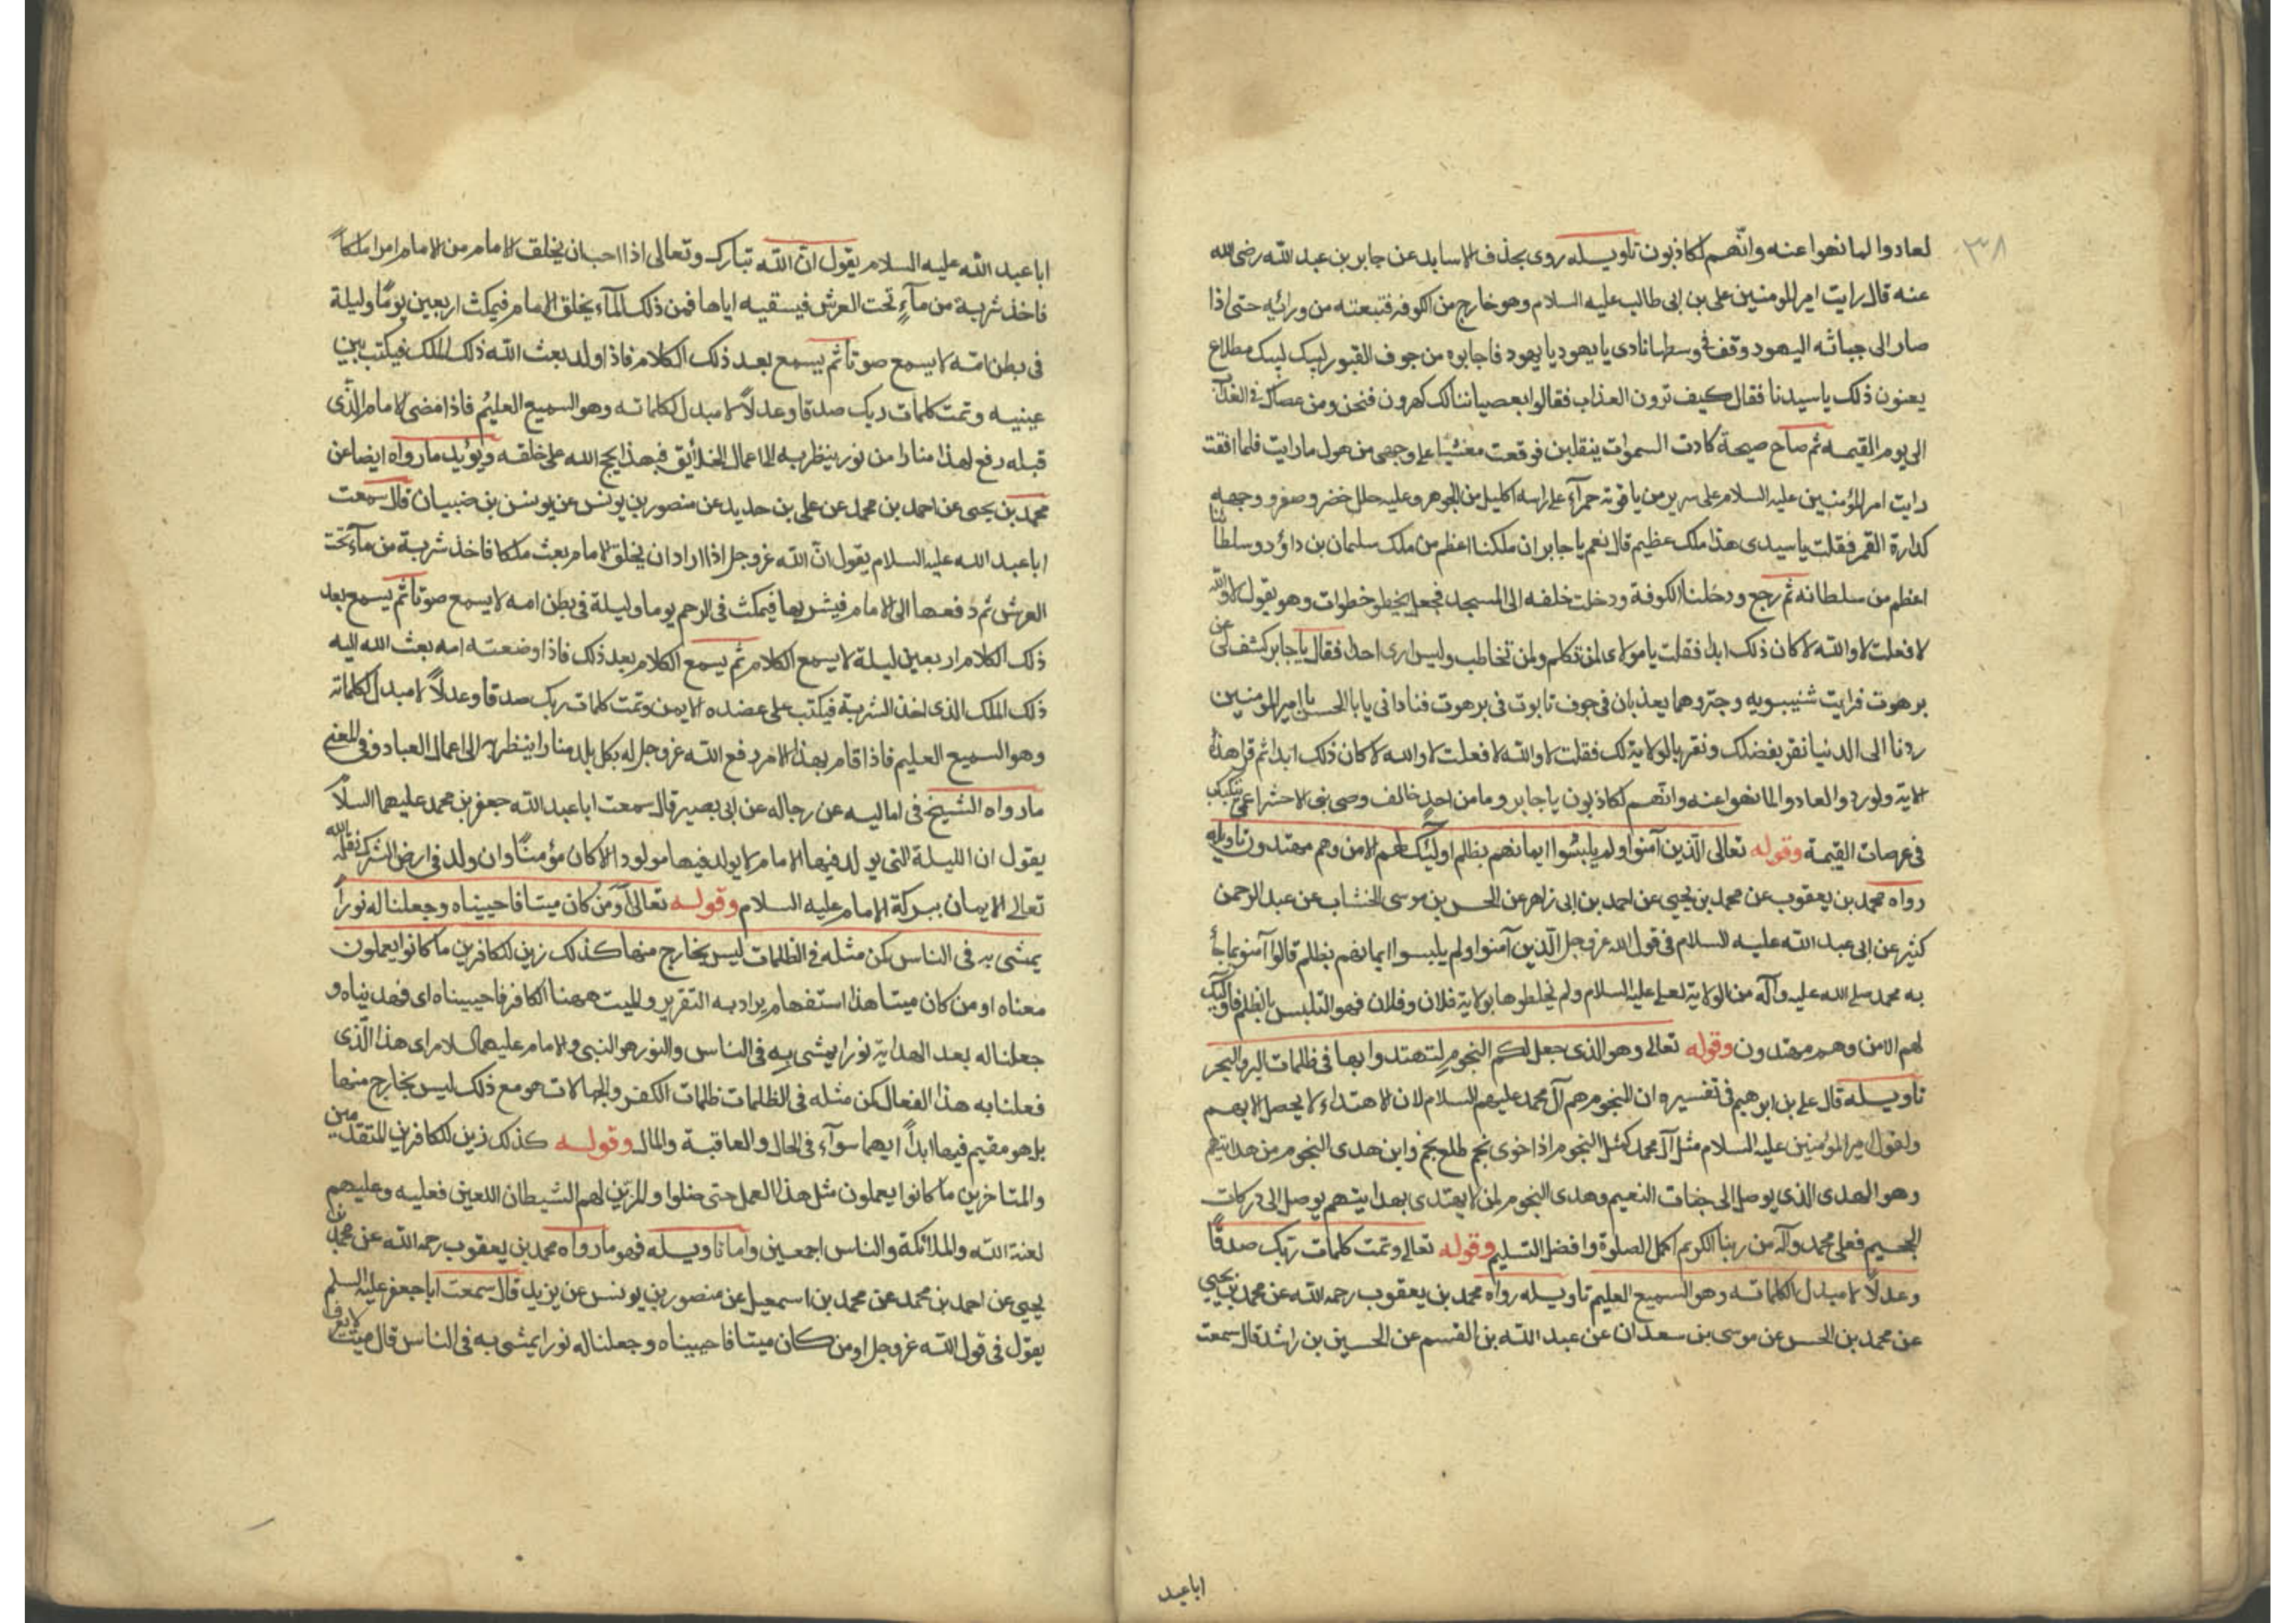 ٣٨
لعادوا لما نهوا عنه وانّهم لكاذبون تاويله روى بحذف الاسانيد عن جابر بن عبد الله رضى الله
عنه قال رايت امير المومنين على بن ابى طالب عليه السلام وهو خارج من الكوفه فتبعته من ورائه حتى اذا
صار الى جبانه اليهود وقف فى وسطها نادى يا يهود يا يهود فاجابوه من جوف القبور لبيك لبيك مطلاع
يعنون ذلك يا سيدنا فقال كيف ترون العذاب فقالوا بعصياننا لك كهرون فنحن ومن عصاك فى العذاب
الى يوم القيمه ثم صاح صيحة كادت السموات ينقلبن فوقعت مغشيّا على وجهى من هول ما رايت فلما افقت
رايت امير المؤمنين عليه السلام على سرير من ياقوته حمرآء على راسه اكليل من الجوهر وعليه حلل خضر وصفر ووجهه
كدارة القمر فقلت يا سيدى هذا ملك عظيم قال نعم يا جابر ان ملكنا اعظم من ملك سلمان بن داؤد وسلطاننا
اعظم من سلطانه ثم رجع ودخلنا الكوفة ودخلت خلفه الى المسجد فجعل يخطو خطوات وهو يقول لا والله
لا فعلت لا والله لا كان ذلك ابدا فقلت يا مولاى لمن تكلم ولمن تخاطب وليس ارى احدا فقال يا جابر كشف لى عن
برهوت فرايت شنيبويه وحبتر وهما يعذبان فى جوف تابوت فى برهوت فنادانى يا ابا الحسن يا امير المومنين
ردنا الى الدنيا نقر بفضلك ونقر بالولاية لك فقلت لا والله لا فعلت لا والله لا كان ذلك ابدا ثم قرا هذه
الاية ولو ردوا لعادوا لما نهوا عنه وانّهم لكاذبون يا جابر وما من احدٍ خالف وصى نبى الا حشر اعمى يتكبكب
فى عرصات القيمة وقوله تعالى الّذين آمنوا ولم يلبسُوا ايمانهم بظلم اولئك لهم الامن وهم مهتدون تاويله
رواه محمد بن يعقوب عن محمد بن يحيى عن احمد بن ابى زاهر عن الحسن بن موسى الخشاب عن عبد الرحمن
كثير عن ابى عبد الله عليه السلام فى قول الله عز وجل الّذين آمنوا ولم يلبسوا ايمانهم بظلم قالوا آمنو بما جأ
به محمد صلى الله عليه وآله من الولاية لعلى عليه السلام ولم يخلطوها بولاية فلان وفلان فهو التلبس بالظلم فاولئك
لهم الامن وهم مهتدون وقوله تعالى وهو الذى جعل لكم النجوم لتهتدوا بها فى ظلمات البر والبحر
تاويله قال على بن ابرهيم فى تفسيره ان النجوم هم آل محمد عليهم السلام لان الاهتداء لا يحصل الا بهم
ولقول امير المؤمنين عليه السلام مثل آل محمد كمثل النجوم اذا خوى نجم طلع نجم واين هدى النجوم من هدايتهم
وهو الهدى الذى يوصل الى جنات النعيم وهدى النجوم لمن لا يقتدى بهدايتهم يوصل الى دركات
الجحيم فعلى محمد وآله من ربنا الكريم اكمل الصلوة وافضل التسليم وقوله تعالى وتمت كلمات ربّك صدقًا
وعدلًا لا مبدل لكلماته وهو السميع العليم تاويله رواه محمد بن يعقوب رحمه الله عن محمد بن يحيى
عن محمد بن الحسن عن موسى بن سعدان عن عبد الله بن القسم عن الحسين بن راشد قال سمعت
ابا عبد
ابا عبد الله عليه السلام يقول انّ الله تبارك وتعالى اذا احب ان يخلق الامام من الامام امر املكاً
فاخذ شربة من مآءٍ تحت العرش فيسقيه اياها فمن ذلك المآء يخلق الامام فيمكث اربعين يومًا وليلة
فى بطن امّه لا يسمع صوتا ثم يسمع بعد ذلك الكلام فاذا ولد بعث الله ذلك الملك فيكتب بين
عينيه وتمت كلمات ربك صدقا وعدلاً لا مبدل لكلماته وهو السميع العليمُ فاذا مضى الامام الّذى
قبله رفع لهذا منارا من نور ينظر به الى اعمال الخلائق فبهذا يحج الله على خلقه ويؤيد ما رواه ايضا عن
محمد بن يحيى عن احمد بن محمد عن على بن حديد عن منصور بن يونس عن يونس بن ضبيان قال سمعت
ابا عبد الله عليه السلام يقول انّ الله عز وجل اذا اراد ان يخلق الامام بعث ملكا فاخذ شربة من مآء تحت
العرش ثم دفعها الى الامام فيشربها فيمكث فى الرحم يوما وليلة فى بطن امه لا يسمع صوتا ثم يسمع بعد
ذلك الكلام اربعين ليلة لا يسمع الكلام ثم يسمع الكلام بعد ذلك فاذا وضعته امه بعث الله اليه
ذلك الملك الذى اخذ الشربة فيكتب على عضده الايمن وتمت كلمات ربك صدقا وعدلاً لا مبدل لكلماته
وهو السميع العليم فاذا قام بهذا الامر رفع الله عز وجل له بكل بلد منارا ينظر به الى اعمال العباد وفى المعنى
ما رواه الشيخ فى اماليه عن رجاله عن ابى بصير قال سمعت ابا عبد الله جعفر بن محمد عليهما السلام
يقول ان الليلة التى يولد فيها الامام لا يولد فيها مولود الا كان مؤمنًا وان ولد فى ارض الشرك نقله الله
تعالى الايمان ببركة الامام عليه السلام وقوله تعالى اَوَمَن كان ميتا فاحييناه وجعلنا له نوراً
يمشى به فى الناس كمن مثله فى الظلمات ليس بخارج منها كذلك زين للكافرين ما كانوا يعملون
معناه او من كان ميتا هذا استفهام يراد به التقرير والميت ههنا الكافر فاحييناه اى فهديناه و
جعلنا له بعد الهداية نورا يمشى به فى الناس والنور هو النبى والامام عليهما السلام اى هذا الّذى
فعلنا به هذا الفعال كمن مثله فى الظلمات ظلمات الكفر والجهالات هو مع ذلك ليس بخارج منها
بل هو مقيم فيها ابداً ايهما سوآء فى الحال والعاقبة والمال وقوله كذلك زين للكافرين المتقدمين
والمتاخرين ما كانوا يعملون مثل هذا العمل حتى ضلوا والمزين لهم الشيطان اللعين فعليه وعليهم
لعنة الله والملائكة والناس اجمعين واما تاويله فهو ما رواه محمد بن يعقوب رحمه الله عن محمد بن
يحيى عن احمد بن محمد عن محمد بن اسمعيل عن منصور بن يونس عن يزيد قال سمعت ابا جعفر عليه السلم
يقول فى قول الله عز وجل او من كان ميتا فاحييناه وجعلنا له نورا يمشى به فى الناس قال ميتا لا يعرف